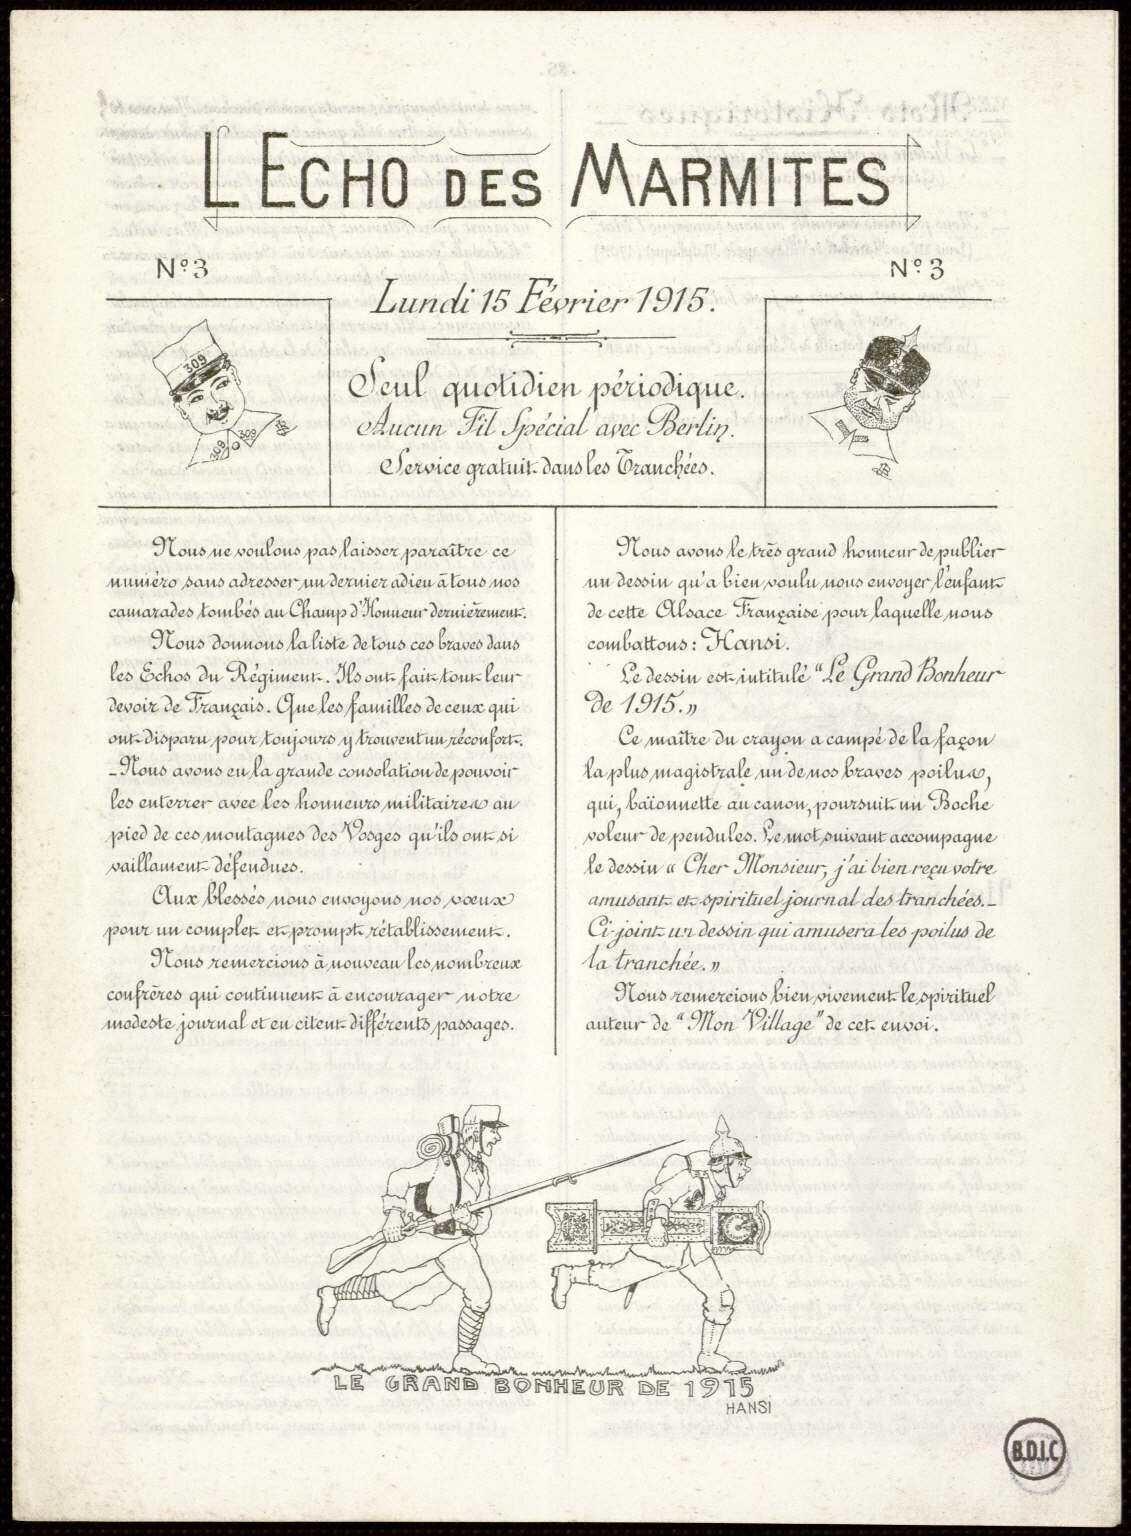 L'ECHO DES MARMITES
N° 3
N° 3
Lundi 15 Février 1915.
Seul quotidien périodique.
Aucun Fil Spécial avec Berlin.
Service gratuit dans les Tranchées.
309
309
309
Nous ne voulons pas laisser paraître ce
numéro sans adresser un dernier adieu à tous nos
camarades tombés au Champ d'Honneur dernièrement.
Nous donnons la liste de tous ces braves dans
les Echos du Régiment. Ils ont fait tout leur
devoir de Français. Que les familles de ceux qui
ont disparu pour toujours y trouvent un réconfort.
_Nous avons eu la grande consolation de pouvoir
les enterrer avec les honneurs militaires au
pied de ces montagnes des Vosges qu'ils ont si
vaillament défendues.
Aux blessés nous envoyons nos vœux
pour un complet et prompt rétablissement.
Nous remercions à nouveau les nombreux
confrères qui continuent à encourager notre
modeste journal et en citent différents passages.
Nous avons le très grand honneur de publier
un dessin qu'a bien voulu nous envoyer l'enfant
de cette Alsace Française pour laquelle nous
combattons : Hansi.
Le dessin est intitulé "Le Grand Bonheur
de 1915."
Ce maître du crayon a campé de la façon
la plus magistrale un de nos braves poilus,
qui, baïonnette au canon, poursuit un Boche
voleur de pendules. Le mot suivant accompagne
le dessin « Cher Monsieur, j'ai bien reçu votre
amusant et spirituel journal des tranchées._
Ci-joint un dessin qui amusera les poilus de
la tranchée. »
Nous remercions bien vivement le spirituel
auteur de "Mon Village" de cet envoi.
LE GRAND BONHEUR DE 1915
HANSI
B.D.I.C